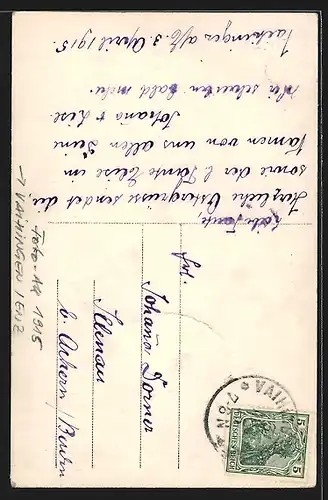 Vaihingen a/E 3. April 1915.
Liebe Tante,
Herzliche Ostergrüsse sendet dir
sowie der l. Tante Luise im
Namen von uns allen Deine
Johana & Lise.
Wir schreiben bald mehr.
Johana Dorner
b. Achern / Baden
Foto-AK 1915
→ VAIHINGEN / ENZ
VAIH
DEUTSCHES REICH
5
5